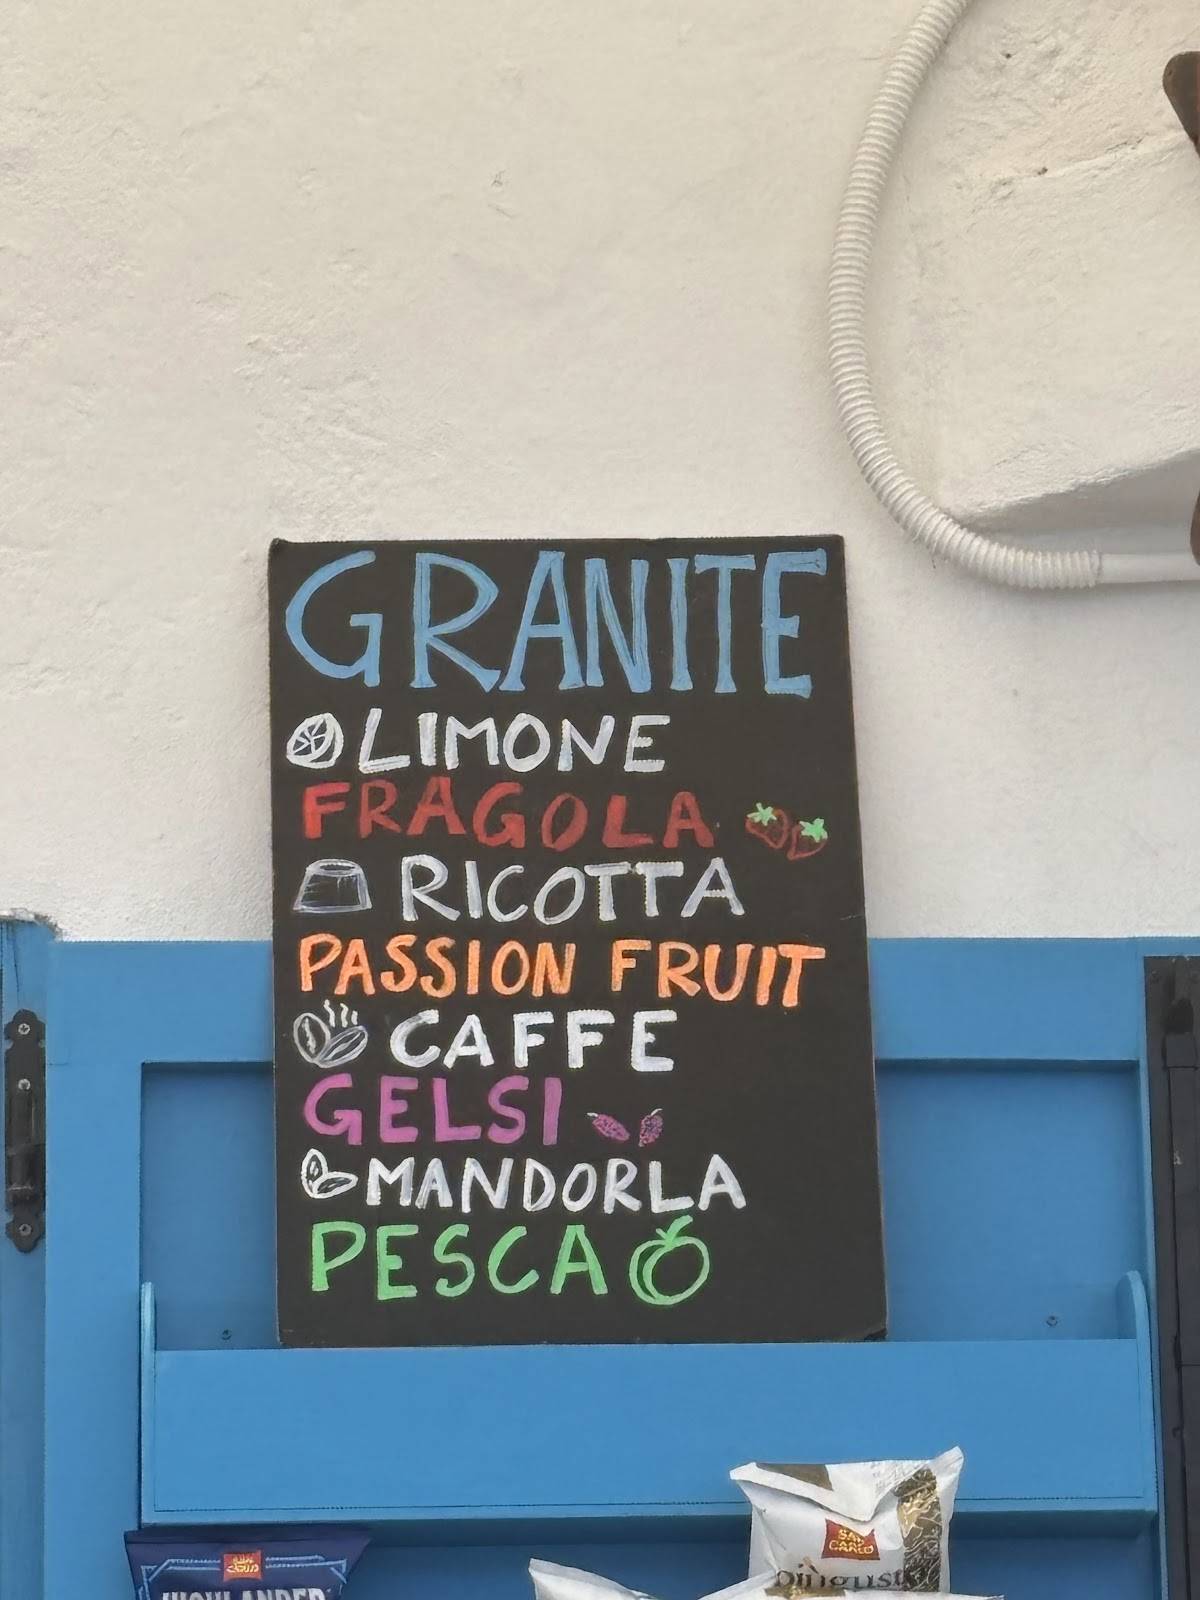 GRANITE
LIMONE
FRAGOLA
RICOTTA
PASSION FRUIT
CAFFE
GELSI
MANDORLA
PESCA
SAN
CARLO
HIGHLANDER